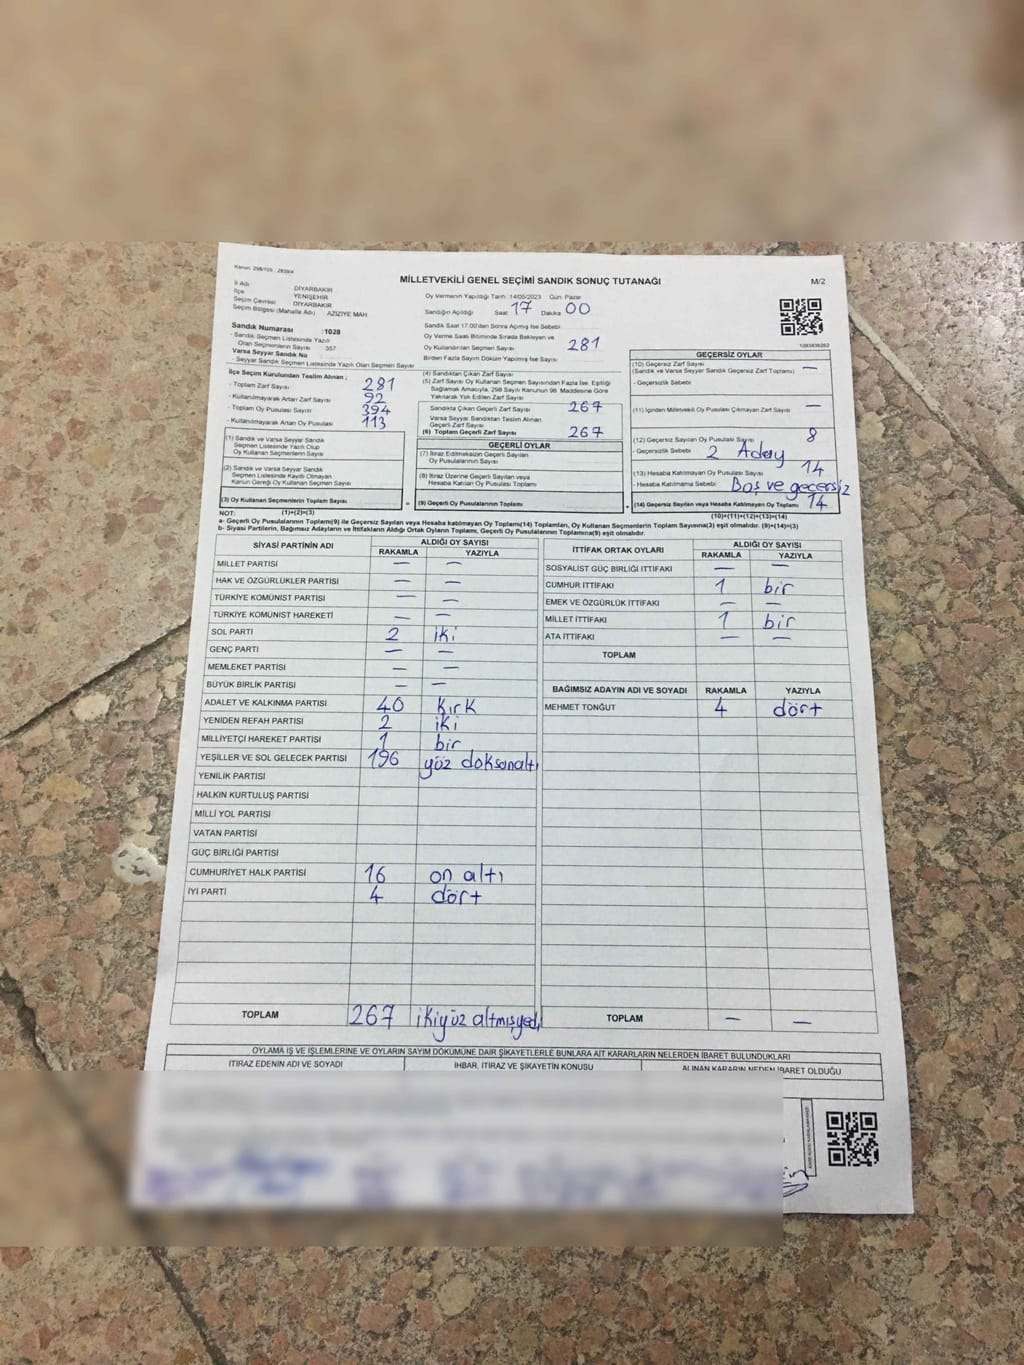 Kanun: 298/105 ; 2839/4
MİLLETVEKİLİ GENEL SEÇİMİ SANDIK SONUÇ TUTANAĞI
M/2
İl Adı DİYARBAKIR
İlçe YENİŞEHİR
Seçim Çevresi DİYARBAKIR
Seçim Bölgesi (Mahalle Adı) : AZİZİYE MAH
Sandık Numarası :1028
- Sandık Seçmen Listesinde Yazılı
Olan Seçmenlerin Sayısı : 357
Varsa Seyyar Sandık No
- Seyyar Sandık Seçmen Listesinde Yazılı Olan Seçmen Sayısı
Oy Vermenin Yapıldığı Tarih: 14/05/2023 Gün: Pazar
Sandığın Açıldığı Saat 17 Dakika 00
Sandık Saat 17.00'den Sonra Açılmış İse Sebebi
Oy Verme Saati Bitiminde Sırada Bekleyen ve
Oy Kullandırılan Seçmen Sayısı 281
Birden Fazla Sayım Döküm Yapılmış İse Sayısı
İlçe Seçim Kurulundan Teslim Alınan ;
- Toplam Zarf Sayısı 281
- Kullanılmayarak Artan Zarf Sayısı 92
- Toplam Oy Pusulası Sayısı 394
- Kullanılmayarak Artan Oy Pusulası 113
(1) Sandık ve Varsa Seyyar Sandık
Seçmen Listesinde Yazılı Olup
Oy Kullanan Seçmenlerin Sayısı
(2) Sandık ve Varsa Seyyar Sandık
Seçmen Listesinde Kayıtlı Olmayan
Kanun Gereği Oy Kullanan Seçmen Sayısı
(3) Oy Kullanan Seçmenlerin Toplam Sayısı
(1)+(2)=(3)
(4) Sandıktan Çıkan Zarf Sayısı
(5) Zarf Sayısı Oy Kullanan Seçmen Sayısından Fazla İse, Eşitliği
Sağlamak Amacıyla, 298 Sayılı Kanunun 98. Maddesine Göre
Yakılarak Yok Edilen Zarf Sayısı
Sandıkta Çıkan Geçerli Zarf Sayısı 267
Varsa Seyyar Sandıktan Teslim Alınan
Geçerli Zarf Sayısı
(6) Toplam Geçerli Zarf Sayısı 267
GEÇERLİ OYLAR
(7) İtiraz Edilmeksizin Geçerli Sayılan
Oy Pusulalarının Sayısı
(8) İtiraz Üzerine Geçerli Sayılan veya
Hesaba Katılan Oy Pusulası Toplamı
= (9) Geçerli Oy Pusulalarının Toplamı +
GEÇERSİZ OYLAR
(10) Geçersiz Zarf Sayısı
(Sandık ve Varsa Seyyar Sandık Geçersiz Zarf Toplamı) —
- Geçersizlik Sebebi
(11) İçinden Milletvekili Oy Pusulası Çıkmayan Zarf Sayısı —
(12) Geçersiz Sayılan Oy Pusulası Sayısı 8
- Geçersizlik Sebebi 2 Aday
(13) Hesaba Katılmayan Oy Pusulası Sayısı 14
- Hesaba Katılmama Sebebi Boş ve geçersiz
(14) Geçersiz Sayılan veya Hesaba Katılmayan Oy Toplamı 14
(10)+(11)+(12)+(13)=(14)
NOT:
a- Geçerli Oy Pusulalarının Toplamı(9) ile Geçersiz Sayılan veya Hesaba katılmayan Oy Toplamı(14) Toplamları, Oy Kullanan Seçmenlerin Toplam Sayısına(3) eşit olmalıdır. (9)+(14)=(3)
b- Siyasi Partilerin, Bağımsız Adayların ve İttifakların Aldığı Ortak Oyların Toplamı, Geçerli Oy Pusulalarının Toplamına(9) eşit olmalıdır.
SİYASİ PARTİNİN ADI ALDIĞI OY SAYISI
RAKAMLA YAZIYLA
MİLLET PARTİSİ — —
HAK VE ÖZGÜRLÜKLER PARTİSİ — —
TÜRKİYE KOMÜNİST PARTİSİ — —
TÜRKİYE KOMÜNİST HAREKETİ — —
SOL PARTİ 2 iki
GENÇ PARTİ — —
MEMLEKET PARTİSİ — —
BÜYÜK BİRLİK PARTİSİ — —
ADALET VE KALKINMA PARTİSİ 40 kırk
YENİDEN REFAH PARTİSİ 2 iki
MİLLİYETÇİ HAREKET PARTİSİ 1 bir
YEŞİLLER VE SOL GELECEK PARTİSİ 196 yüz doksanaltı
YENİLİK PARTİSİ
HALKIN KURTULUŞ PARTİSİ
MİLLİ YOL PARTİSİ
VATAN PARTİSİ
GÜÇ BİRLİĞİ PARTİSİ
CUMHURİYET HALK PARTİSİ 16 on altı
İYİ PARTİ 4 dört
TOPLAM 267 ikiyüz altmışyedi
İTTİFAK ORTAK OYLARI ALDIĞI OY SAYISI
RAKAMLA YAZIYLA
SOSYALİST GÜÇ BİRLİĞİ İTTİFAKI — —
CUMHUR İTTİFAKI 1 bir
EMEK VE ÖZGÜRLÜK İTTİFAKI — —
MİLLET İTTİFAKI 1 bir
ATA İTTİFAKI — —
TOPLAM
BAĞIMSIZ ADAYIN ADI VE SOYADI RAKAMLA YAZIYLA
MEHMET TONĞUT 4 dört
TOPLAM — —
OYLAMA İŞ VE İŞLEMLERİNE VE OYLARIN SAYIM DÖKÜMÜNE DAİR ŞİKAYETLERLE BUNLARA AİT KARARLARIN NELERDEN İBARET BULUNDUKLARI
İTİRAZ EDENİN ADI VE SOYADI İHBAR, İTİRAZ VE ŞİKAYETİN KONUSU ALINAN KARARIN NEDEN İBARET OLDUĞU